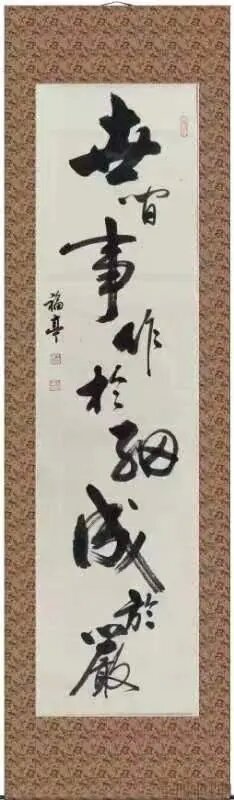 世間事作於細成於嚴
福亭